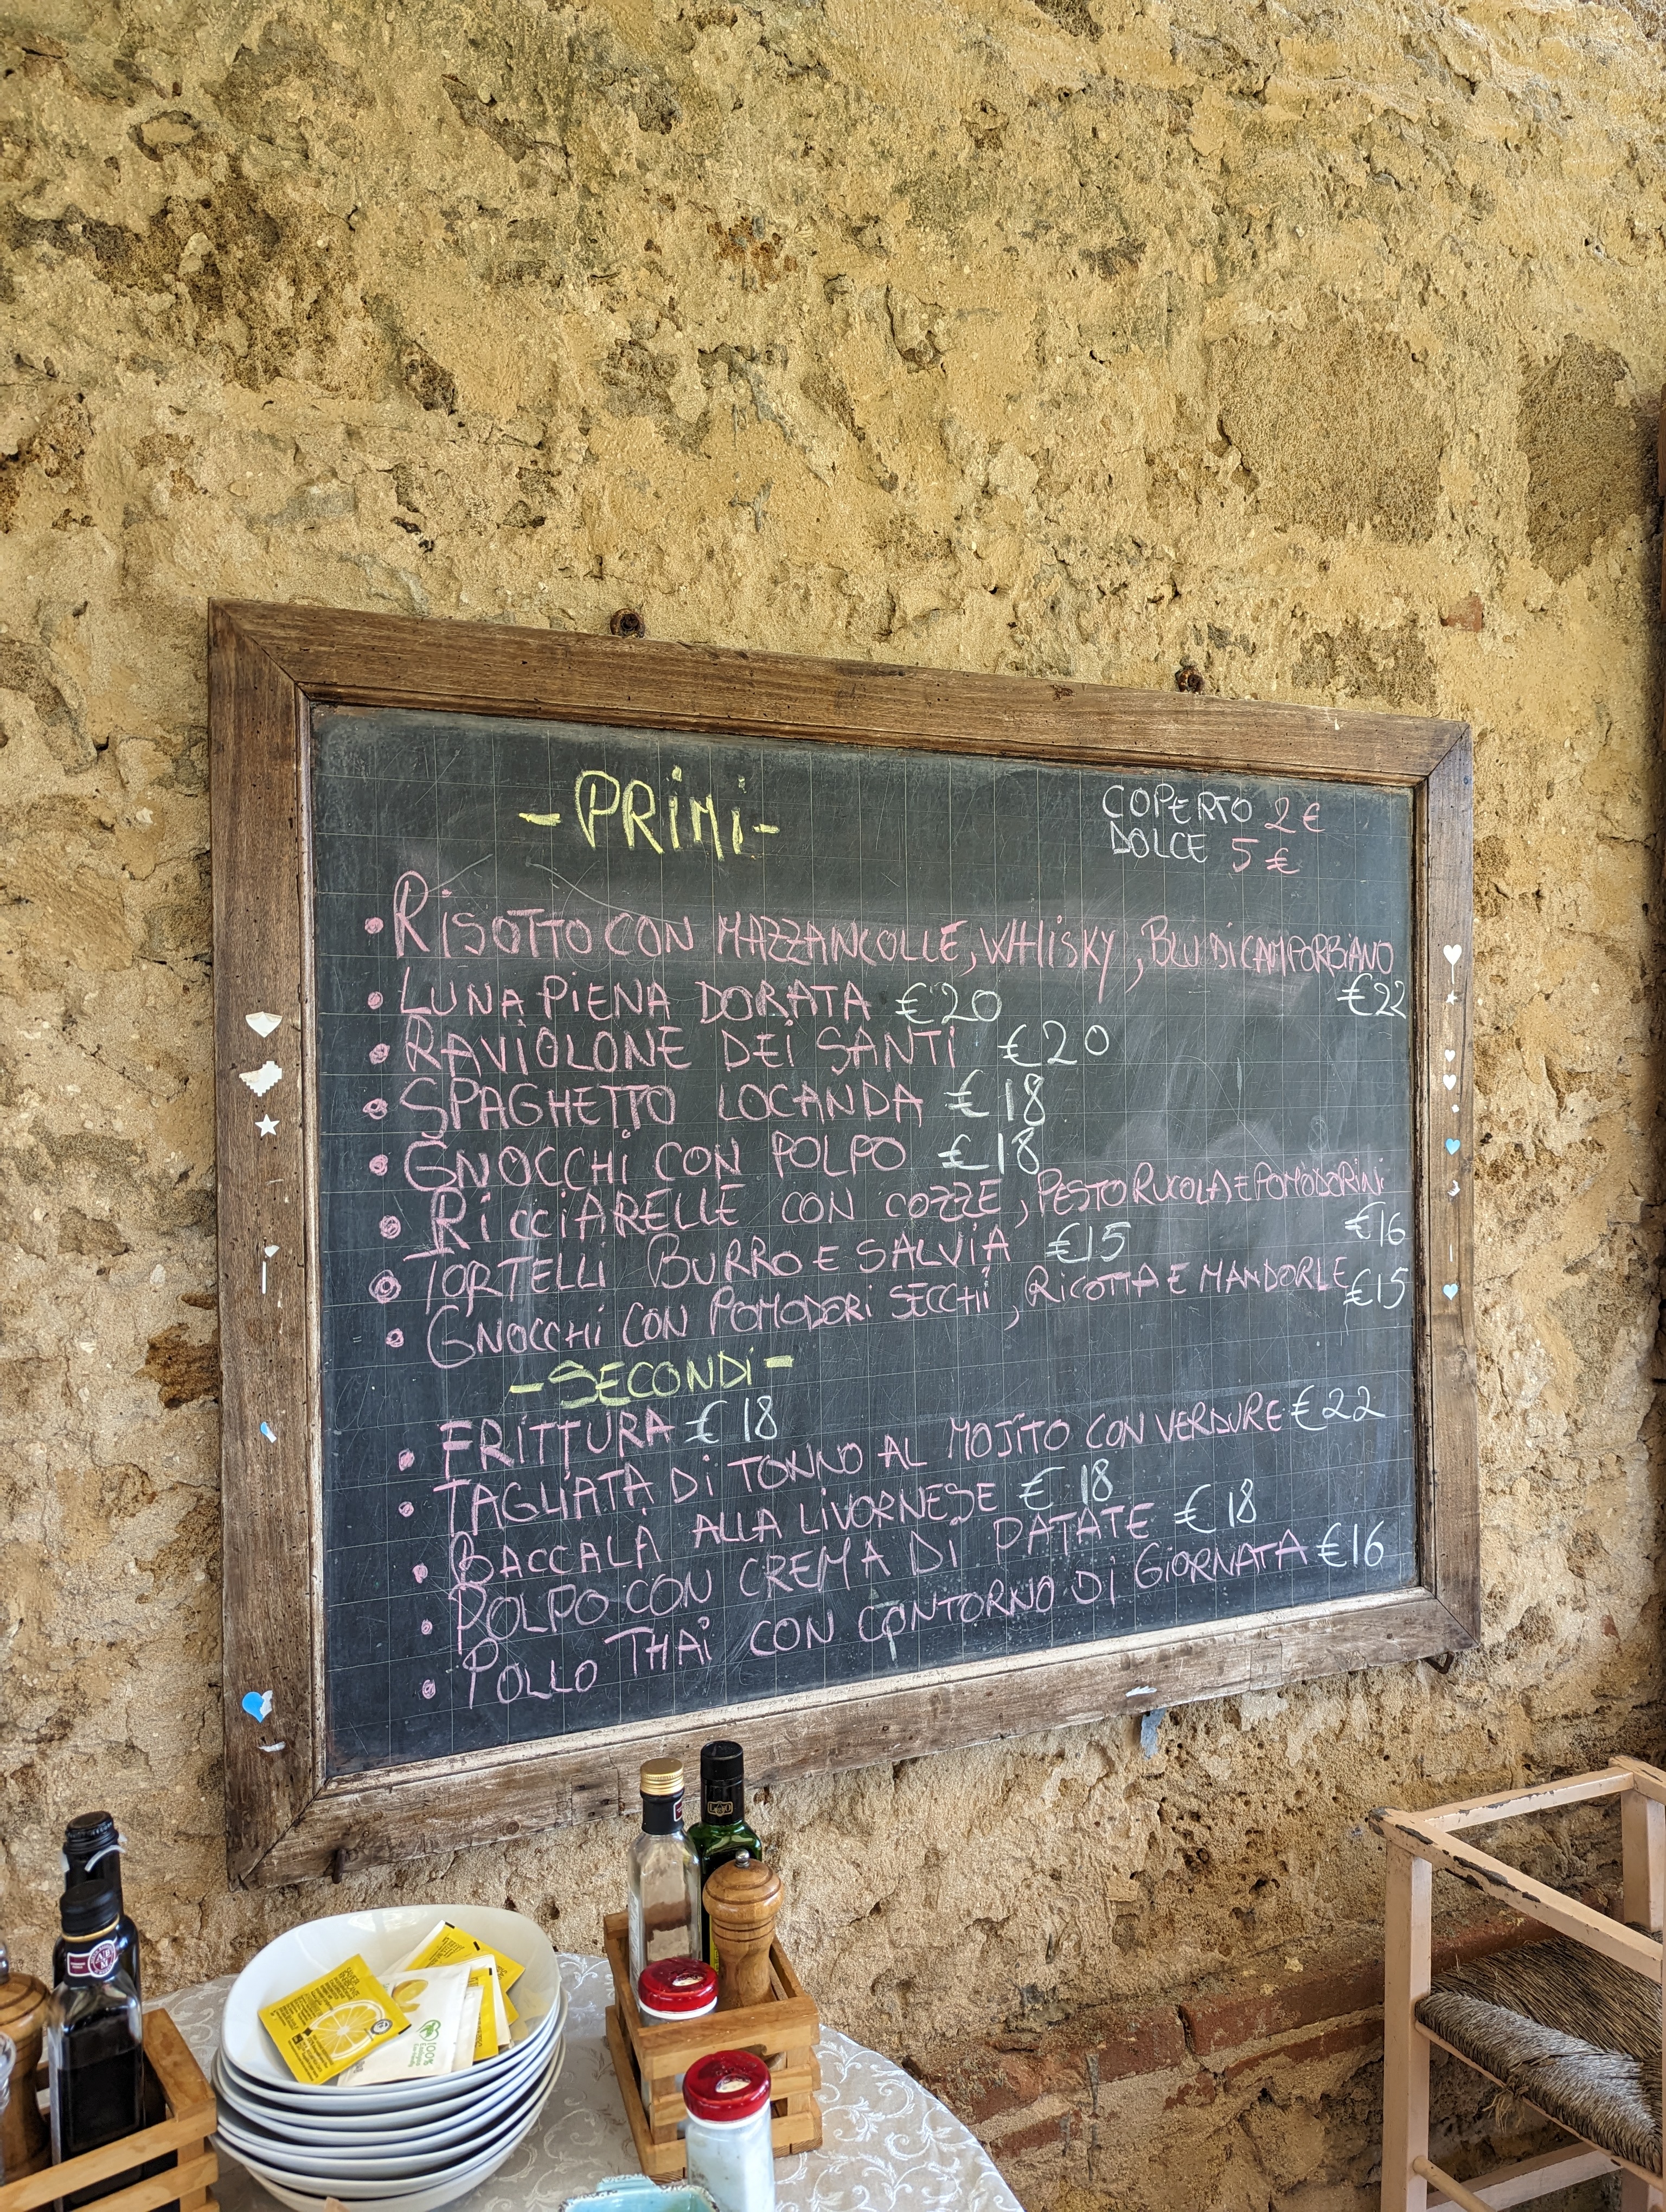 -PRIMI-
COPERTO 2 €
DOLCE 5 €
• RISOTTO CON MAZZANCOLLE, WHISKY, BLU DI CAMPORBIANO
€22
• LUNA PIENA DORATA €20
• RAVIOLONE DEI SANTI €20
• SPAGHETTO LOCANDA €18
• GNOCCHI CON POLPO €18
• RICCIARELLE CON COZZE, PESTO RUCOLA E POMODORINI
€16
• TORTELLI BURRO E SALVIA €15
• GNOCCHI CON POMODORI SECCHI, RICOTTA E MANDORLE €15
-SECONDI-
• FRITTURA €18
• TAGLIATA DI TONNO AL MOJITO CON VERDURE €22
• BACCALA ALLA LIVORNESE €18
• POLPO CON CREMA DI PATATE €18
• POLLO THAI CON CONTORNO DI GIORNATA €16
100%